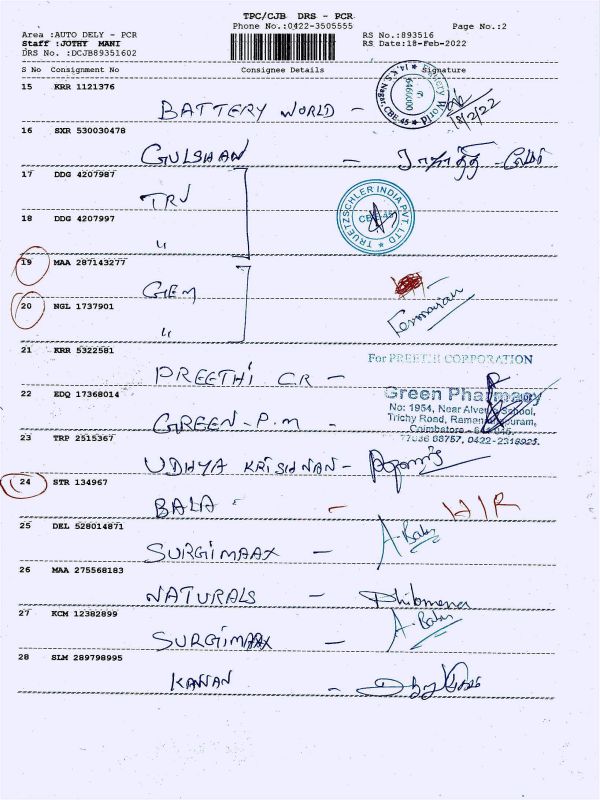 TPC/CJB DRS - PCR
Phone No.:0422-3505555
Page No.:2
Area :AUTO DELY - PCR
RS No.:893516
Staff :JOTHY MANI
RS Date:18-Feb-2022
DRS No. :DCJB89351602
S No Consignment No Consignee Details Signature
15 KRR 1121376
BATTERY WORLD -
18/2/22
16 SXR 530030478
GULSHAN -
17 DDG 4207987
TRV
18 DDG 4207997
"
TRUETZSCHLER INDIA PVT. LTD
CBE-45
19 MAA 287143277
GEM
20 NGL 1737901
"
21 KRR 5322581
For PREETHI CORPORATION
PREETHI CR -
22 EDQ 17368014
Green Pharmacy
No: 1954, Near Alvernia School,
Trichy Road, Ramanathapuram,
Coimbatore - 641 045.
77086 68757, 0422-2318925.
GREEN - P.M -
23 TRP 2515367
UDHYA KRISHNAN -
24 STR 134967
BALA - H/R
25 DEL 528014871
SURGIMAAX - A-Balan
26 MAA 275568183
NATURALS - Philomena
27 KCM 12382899
SURGIMAAX - A-Balan
28 SLM 289798995
KANNAN -